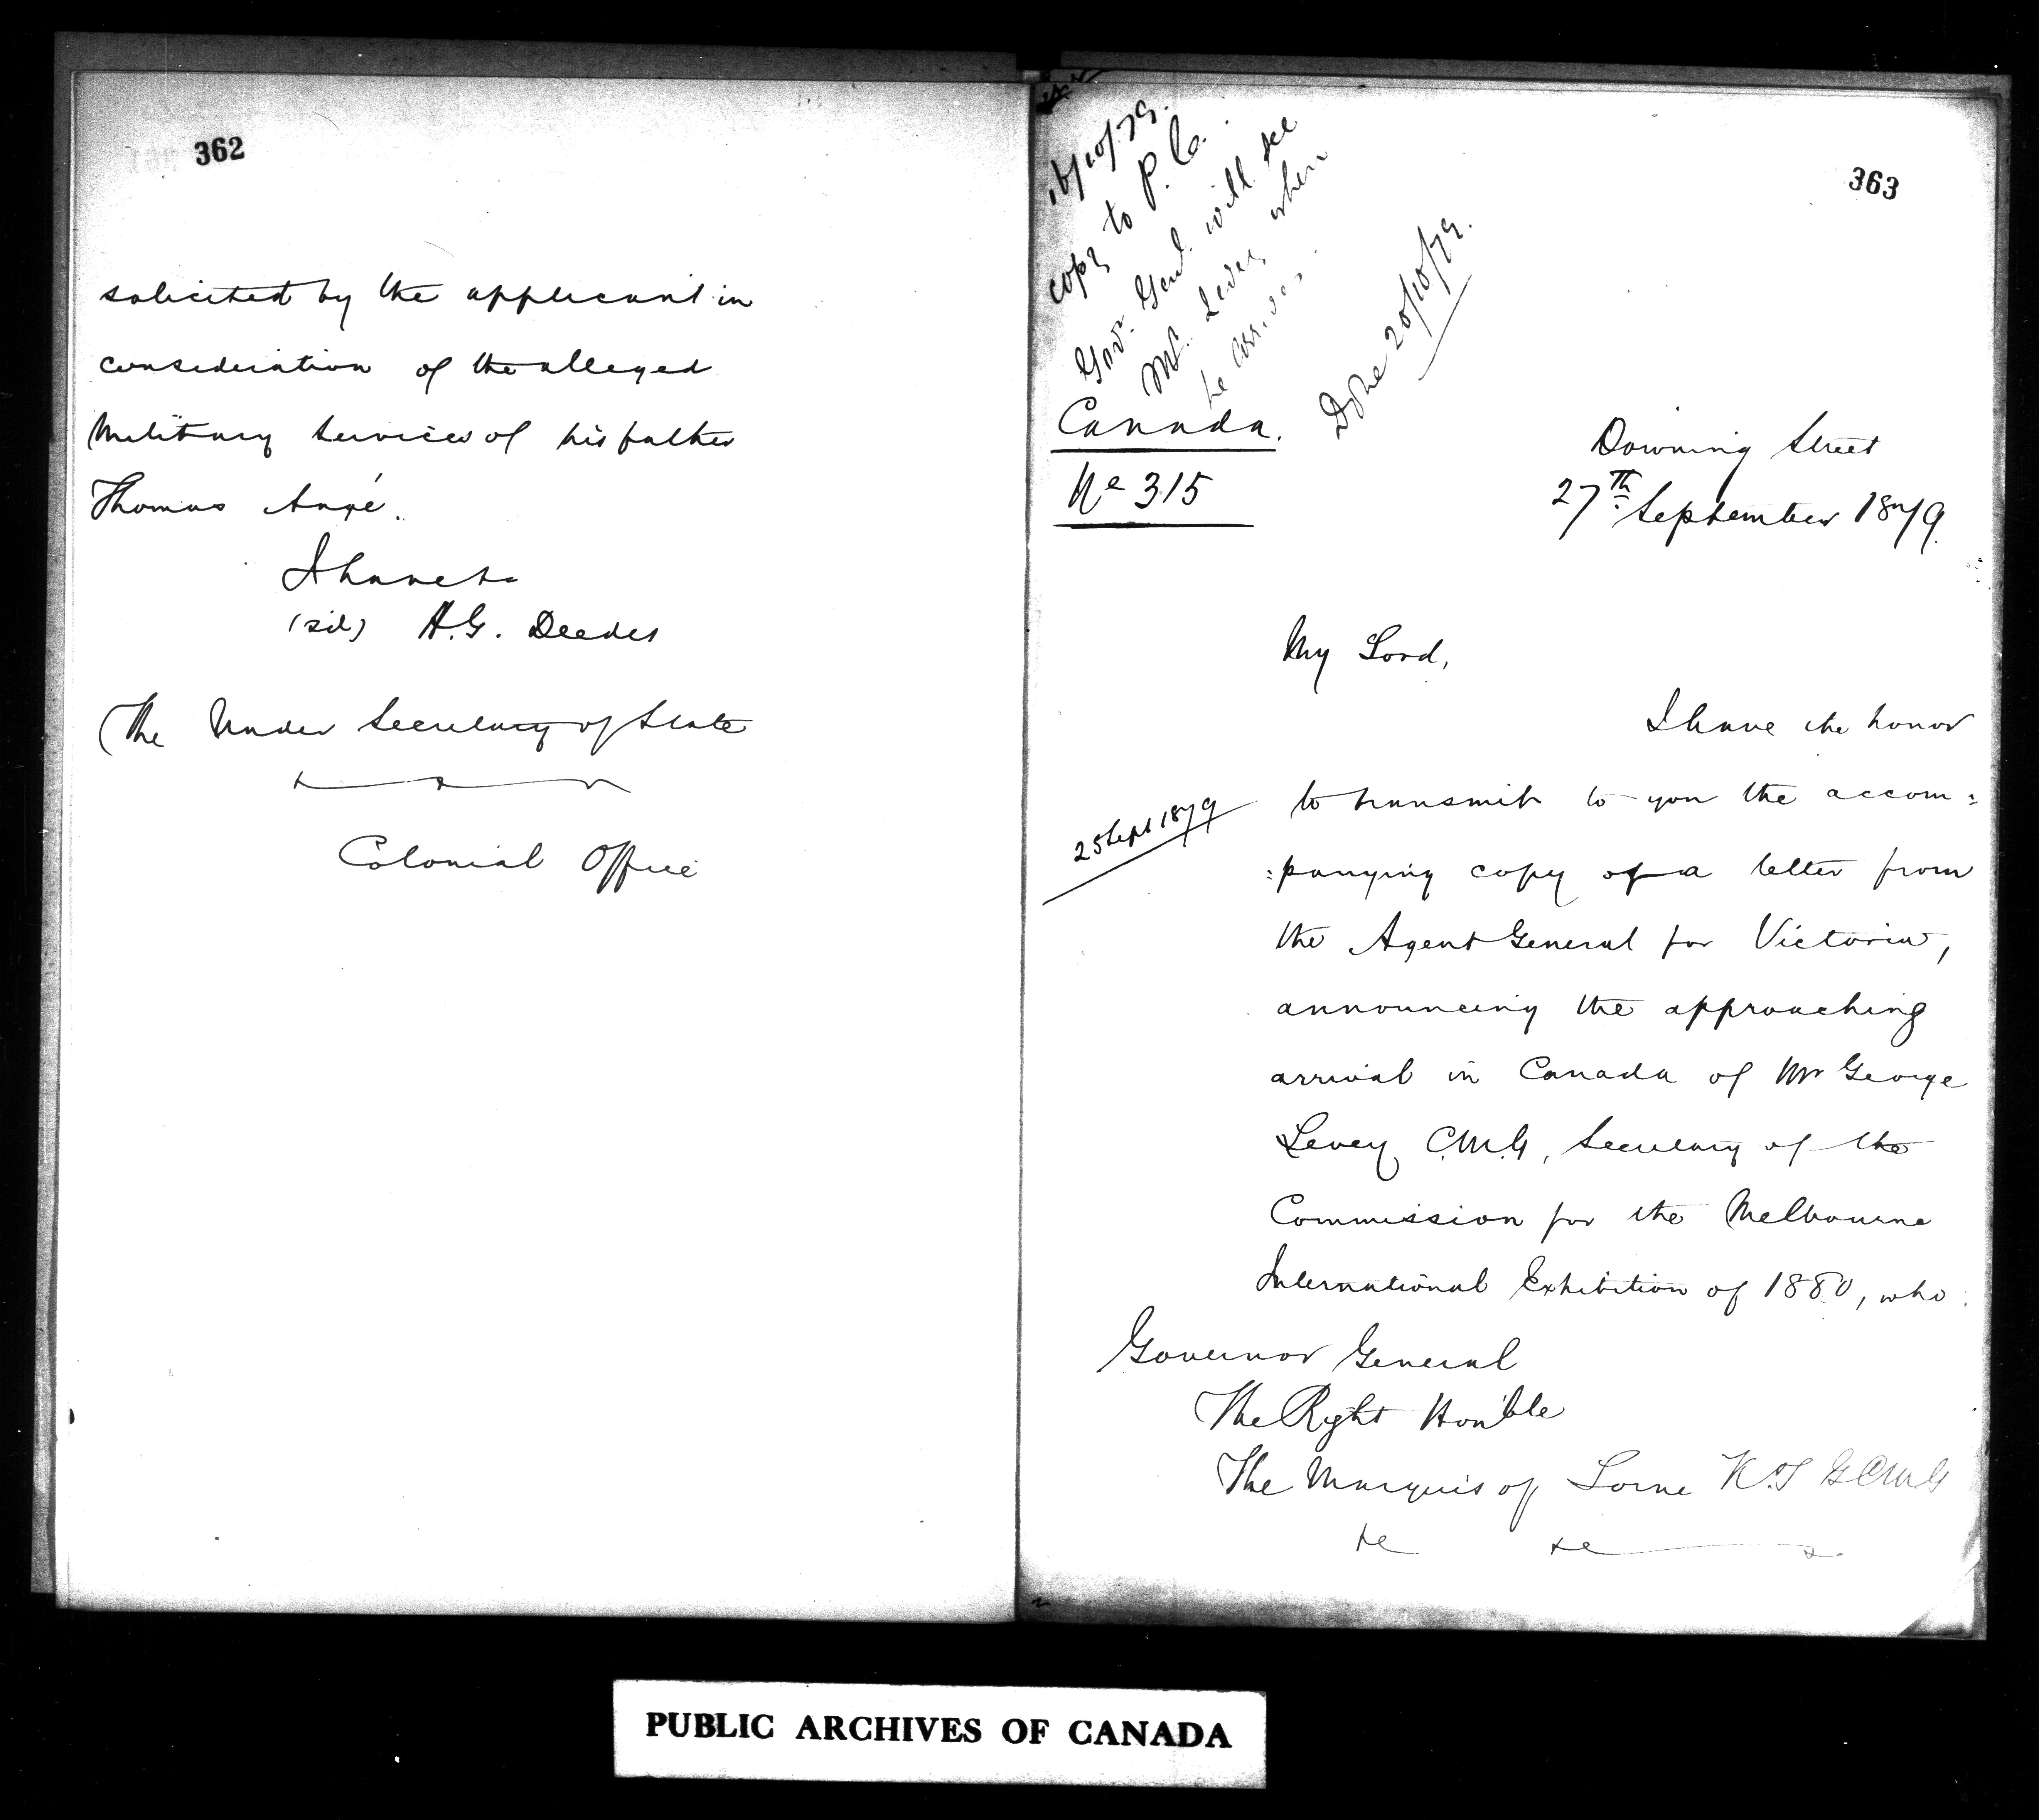 362
solicited by the applicant in
consideration of the alleged
Military Services of his father
Thomas Angé.
I have &c
(sd) H.G. Deedes
(The Under Secretary of State
Colonial Office
363
16/10/79.
copy to P.C.
Govr. Genl. will see
Mr. Levey when
he arrives.
Done 20/10/79.
Canada.
No 315
Downing Street
27th September 1879
My Lord,
I have the honor
25 Sept 1879
to transmit to you the accom=
=panying copy of a letter from
the Agent General for Victoria,
announcing the approaching
arrival in Canada of Mr George
Levey C.M.G, Secretary of the
Commission for the Melbourne
International Exhibition of 1880, who
Governor General
The Right Hon'ble
The Marquis of Lorne K.T G.C.M.G
&c &c
PUBLIC ARCHIVES OF CANADA